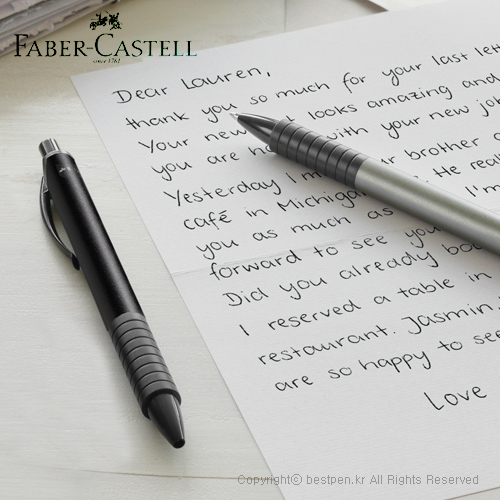 FABER-CASTELL
since 1761
Dear Lauren,
thank you so much for your last
Your new looks amazing and
you are with your new
Yesterday I brother
café in Michigan He
you as much as I'm
forward to see
Did you already
I reserved a table in
restaurant. Jasmin
are so happy to see
Love
Copyrightⓒ bestpen.kr All Rights Reserved